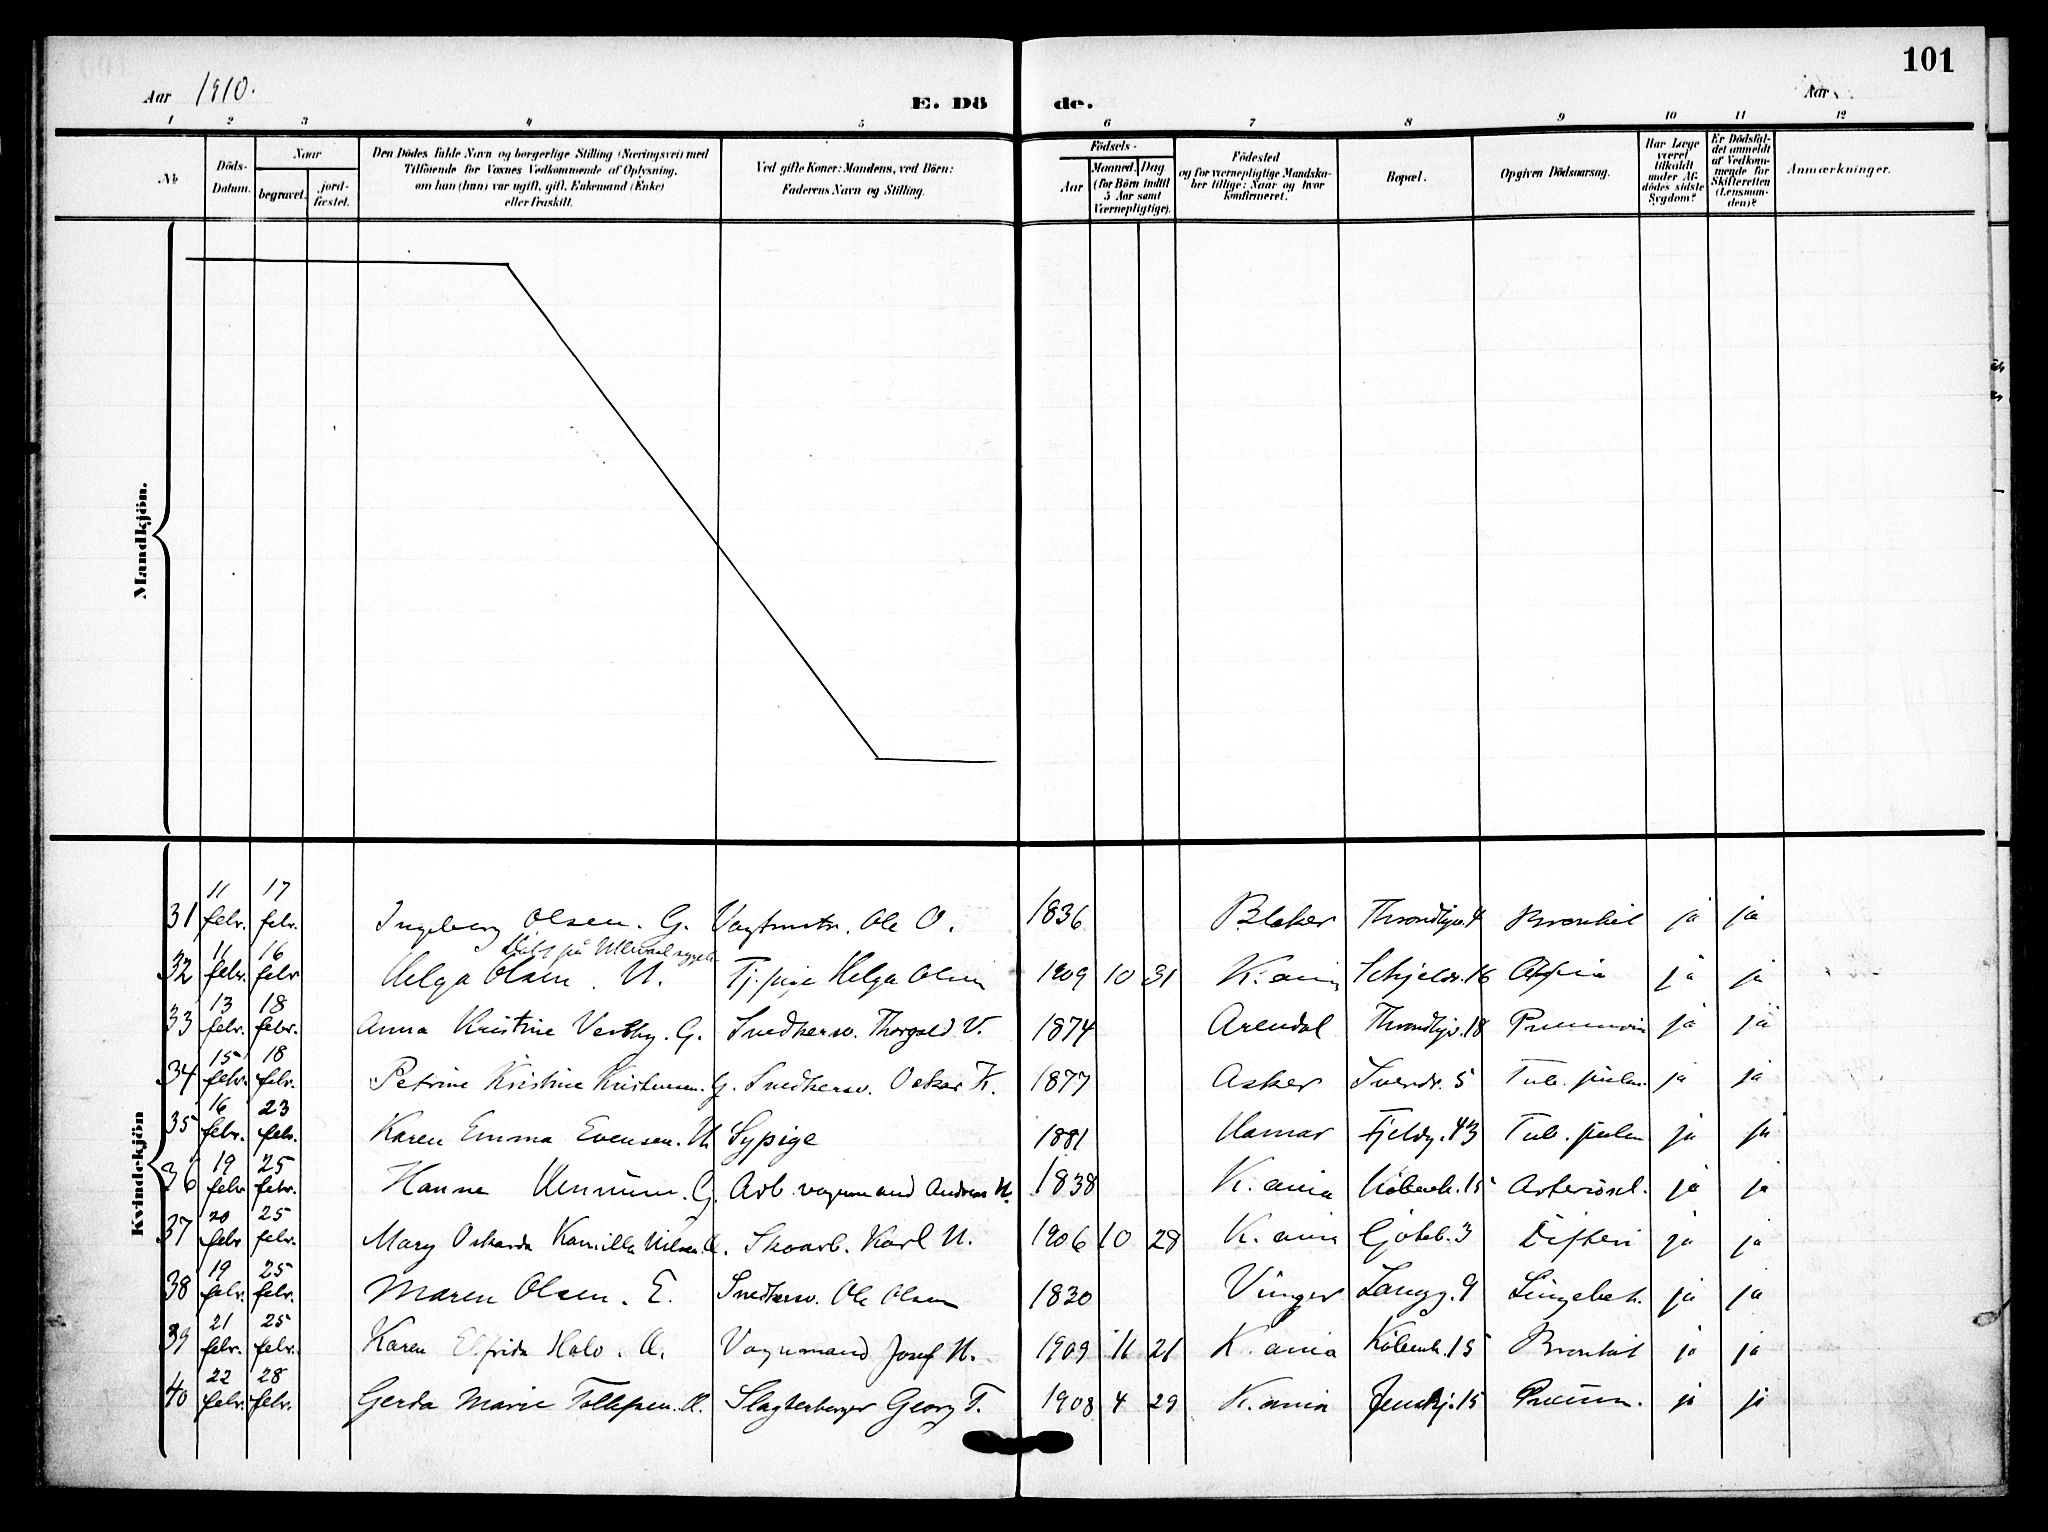 101
Aar 1910.
E. Dö de.
Aar
1 2 3 4 5 6 7 8 9 10 11 12
No.
Döds-Datum.
Naar
begravet.
jord-fæstet.
Den Dödes fulde Navn og borgerlige Stilling (Næringsvei) med
Tilföiende for Voxnes Vedkommende af Oplysning,
om han (hun) var ugift, gift, Enkemand (Enke)
eller fraskilt.
Ved gifte Koner: Mandens, ved Börn:
Faderens Navn og Stilling.
Födsels-
Aar
Maaned. Dag
(for Börn indtil
5 Aar samt
Værnepligtige).
Födested
og for værnepligtige Mandska-
ber tillige: Naar og hvor
konfirmeret.
Bopæl.
Opgiven Dödsaarsag.
Har Læge
været
tilkaldt
under Af-
dödes sidste
Sygdom?
Er Dödsfal-
det anmeldt
af Vedkom-
mende for
Skifteretten
(Lensman-
den)?
Anmærkninger.
Mandkjön.
Kvindekjön
31 11 febr. 17 febr. Ingeborg Olsen. G. Vagtmstr. Ole O. 1836 Blaker Throndhjv. 4 Bronkit ja ja
Död på Ullevaal sygeh.
32 11 febr. 16 febr Helga Olsen. U. Tj.pige Helga Olsen 1909 10 31 K.ania Schjelds. 16 ja ja
33 13 febr. 18 febr. Anna Kristine Vestby. G. Snedkersv. Thorvald V. 1874 Arendal Throndhjv. 18 Pneumoni ja ja
34 15 febr. 18 febr. Petrine Kristine Kristensen. G. Snedkersv. Oskar K. 1877 Asker Sverdr. 5 Tub. pulm. ja ja
35 16 febr. 23 febr. Karen Emma Evensen. U. Sypige 1881 Hamar Fjeldg. 43 Tub. pulm ja ja
36 19 febr. 25 febr. Hanna Hennum. G. Arb. vognmand Andreas H. 1838 K.ania Köbenh. 15 Arteriöskl. ja ja
37 20 febr 25 febr. Mary Oskarda Kamilla Nilsen. U. Skoarb. Karl N. 1906 10 28 K.ania Göteb. 3 Difteri ja ja
38 19 febr. 25 febr. Maren Olsen. E. Snedkersv. Ole Olsen 1830 Vinger Langg. 9 Lungebet. ja ja
39 21 febr. 25 febr. Karen Elfrida Holo. U. Vognmand Josef H. 1909 11 21 K.ania Köbenh. 15 Bronkit ja ja
40 22 febr. 28 febr. Gerda Marie Tollefsen. U. Slagterborger Georg T. 1908 4 29 K.ania 15 Pneum. ja ja